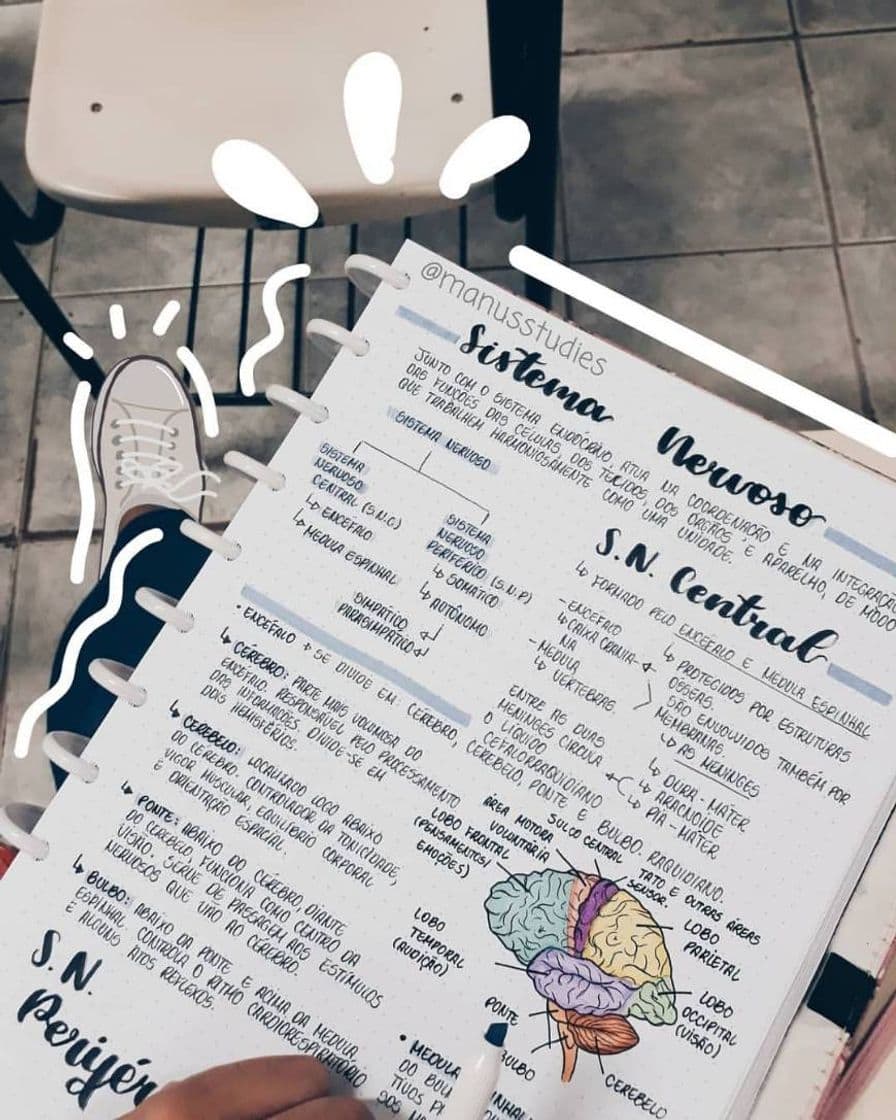 @manusstudies
Sistema Nervoso
JUNTO COM O SISTEMA ENDÓCRINO, ATUA NA COORDENAÇÃO E NA INTEGRAÇÃO
DAS FUNÇÕES DAS CÉLULAS, DOS TECIDOS, DOS ÓRGÃOS E APARELHO, DE MODO
QUE TRABALHEM HARMONIOSAMENTE COMO UMA UNIDADE.
SISTEMA NERVOSO
SISTEMA
NERVOSO
CENTRAL (S.N.C)
↳ ENCÉFALO
↳ MEDULA ESPINHAL
SISTEMA
NERVOSO
PERIFÉRICO (S.N.P)
↳ SOMÁTICO
↳ AUTÔNOMO
SIMPÁTICO
PARASIMPÁTICO
S.N. Central
↳ FORMADO PELO ENCÉFALO E MEDULA ESPINHAL
- ENCÉFALO
↳ CAIXA CRANIA-
NA
- MEDULA
↳ VÉRTEBRAS.
↳ PROTEGIDOS POR ESTRUTURAS
ÓSSEAS.
SÃO ENVOLVIDOS TAMBÉM POR
MEMBRANAS
↳ AS MENINGES
↳ DURA-MATER
↳ ARACNOIDE
↳ PIA-MATER
ENTRE AS DUAS
MENINGES CIRCULA
O LÍQUIDO
CEFALORRAQUIDIANO
RAQUIDIANO.
• ENCÉFALO → SE DIVIDE EM: CÉREBRO, CEREBELO, PONTE E BULBO.
↳ CÉREBRO: PARTE MAIS VOLUMOSA DO
ENCÉFALO. RESPONSÁVEL PELO PROCESSAMENTO
DAS INFORMAÇÕES. DIVIDE-SE EM
DOIS HEMISFÉRIOS.
↳ CEREBELO: LOCALIZADO LOGO ABAIXO
DO CÉREBRO. CONTROLADOR DA TONICIDADE,
VIGOR MUSCULAR, EQUILÍBRIO CORPORAL
E ORIENTAÇÃO ESPACIAL.
↳ PONTE: ABAIXO DO CÉREBRO, DIANTE
DO CEREBELO, FUNCIONA COMO CENTRO DA
VISÃO, SERVE DE PASSAGEM AOS ESTÍMULOS
NERVOSOS QUE VÃO AO CÉREBRO.
↳ BULBO: ABAIXO DA PONTE E ACIMA DA MEDULA
ESPINHAL. CONTROLA O RITMO CARDIORRESPIRATÓRIO
E ALGUNS ATOS REFLEXOS.
ÁREA MOTORA
VOLUNTÁRIA
SULCO CENTRAL
TATO E OUTRAS ÁREAS
SENSOR.
LOBO FRONTAL
(PENSAMENTOS/
EMOÇÕES)
LOBO
PARIETAL
LOBO
TEMPORAL
(AUDIÇÃO)
LOBO
OCCIPITAL
(VISÃO)
PONTE
BULBO
CEREBELO
S.N.
Perifér
• MEDULA
DO BUL